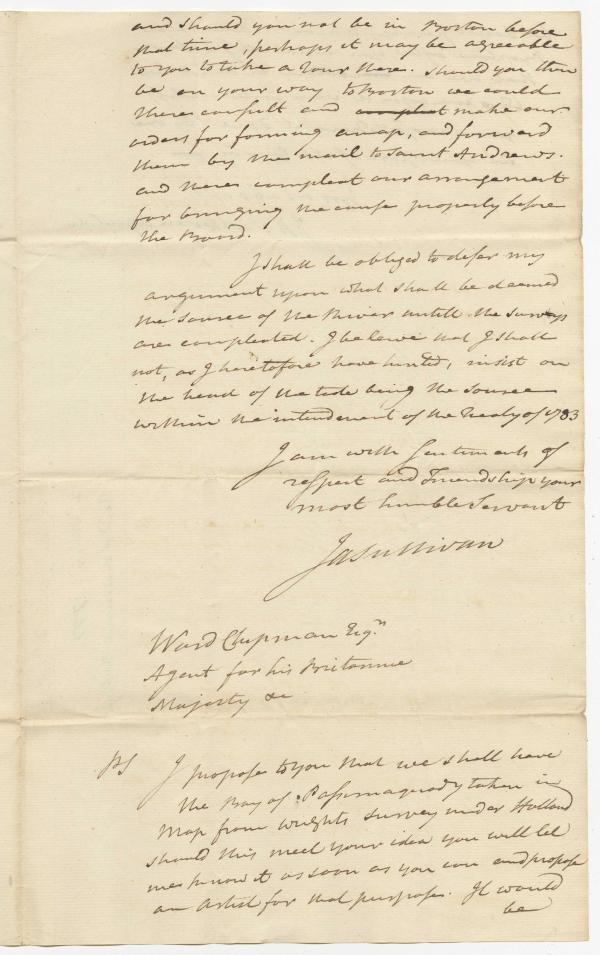 and should you not be in Boston before
that time, perhaps it may be agreeable
to you to take a Tour there. Should you then
be on your way to Boston we could
there consult and compleat make our
orders for forming a map, and forward
them by the mail to Saint Andrews.
and there compleat our arrangement
for bringing the cause properly before
the Board.
I shall be obliged to defer my
argument upon what shall be deemed
the source of the River untill the surveys
are compleated. I beleive that I shall
not, as I heretofore have hinted, insist on
the head of the tide being the source
within the intendement of the Treaty of 1783
I am with Sentiments of
respect and Friendship your
most humble Servant
Ja Sullivan
Ward Chipman Esqr.
Agent for his Britannic
Majesty &c
PS I propose to you that we shall have
the Bay of Passamaquady taken in
Map from Wrights survey under Holland
should this meet your idea you will let
me know it as soon as you can and propose
an Artist for that purpose. It would
be